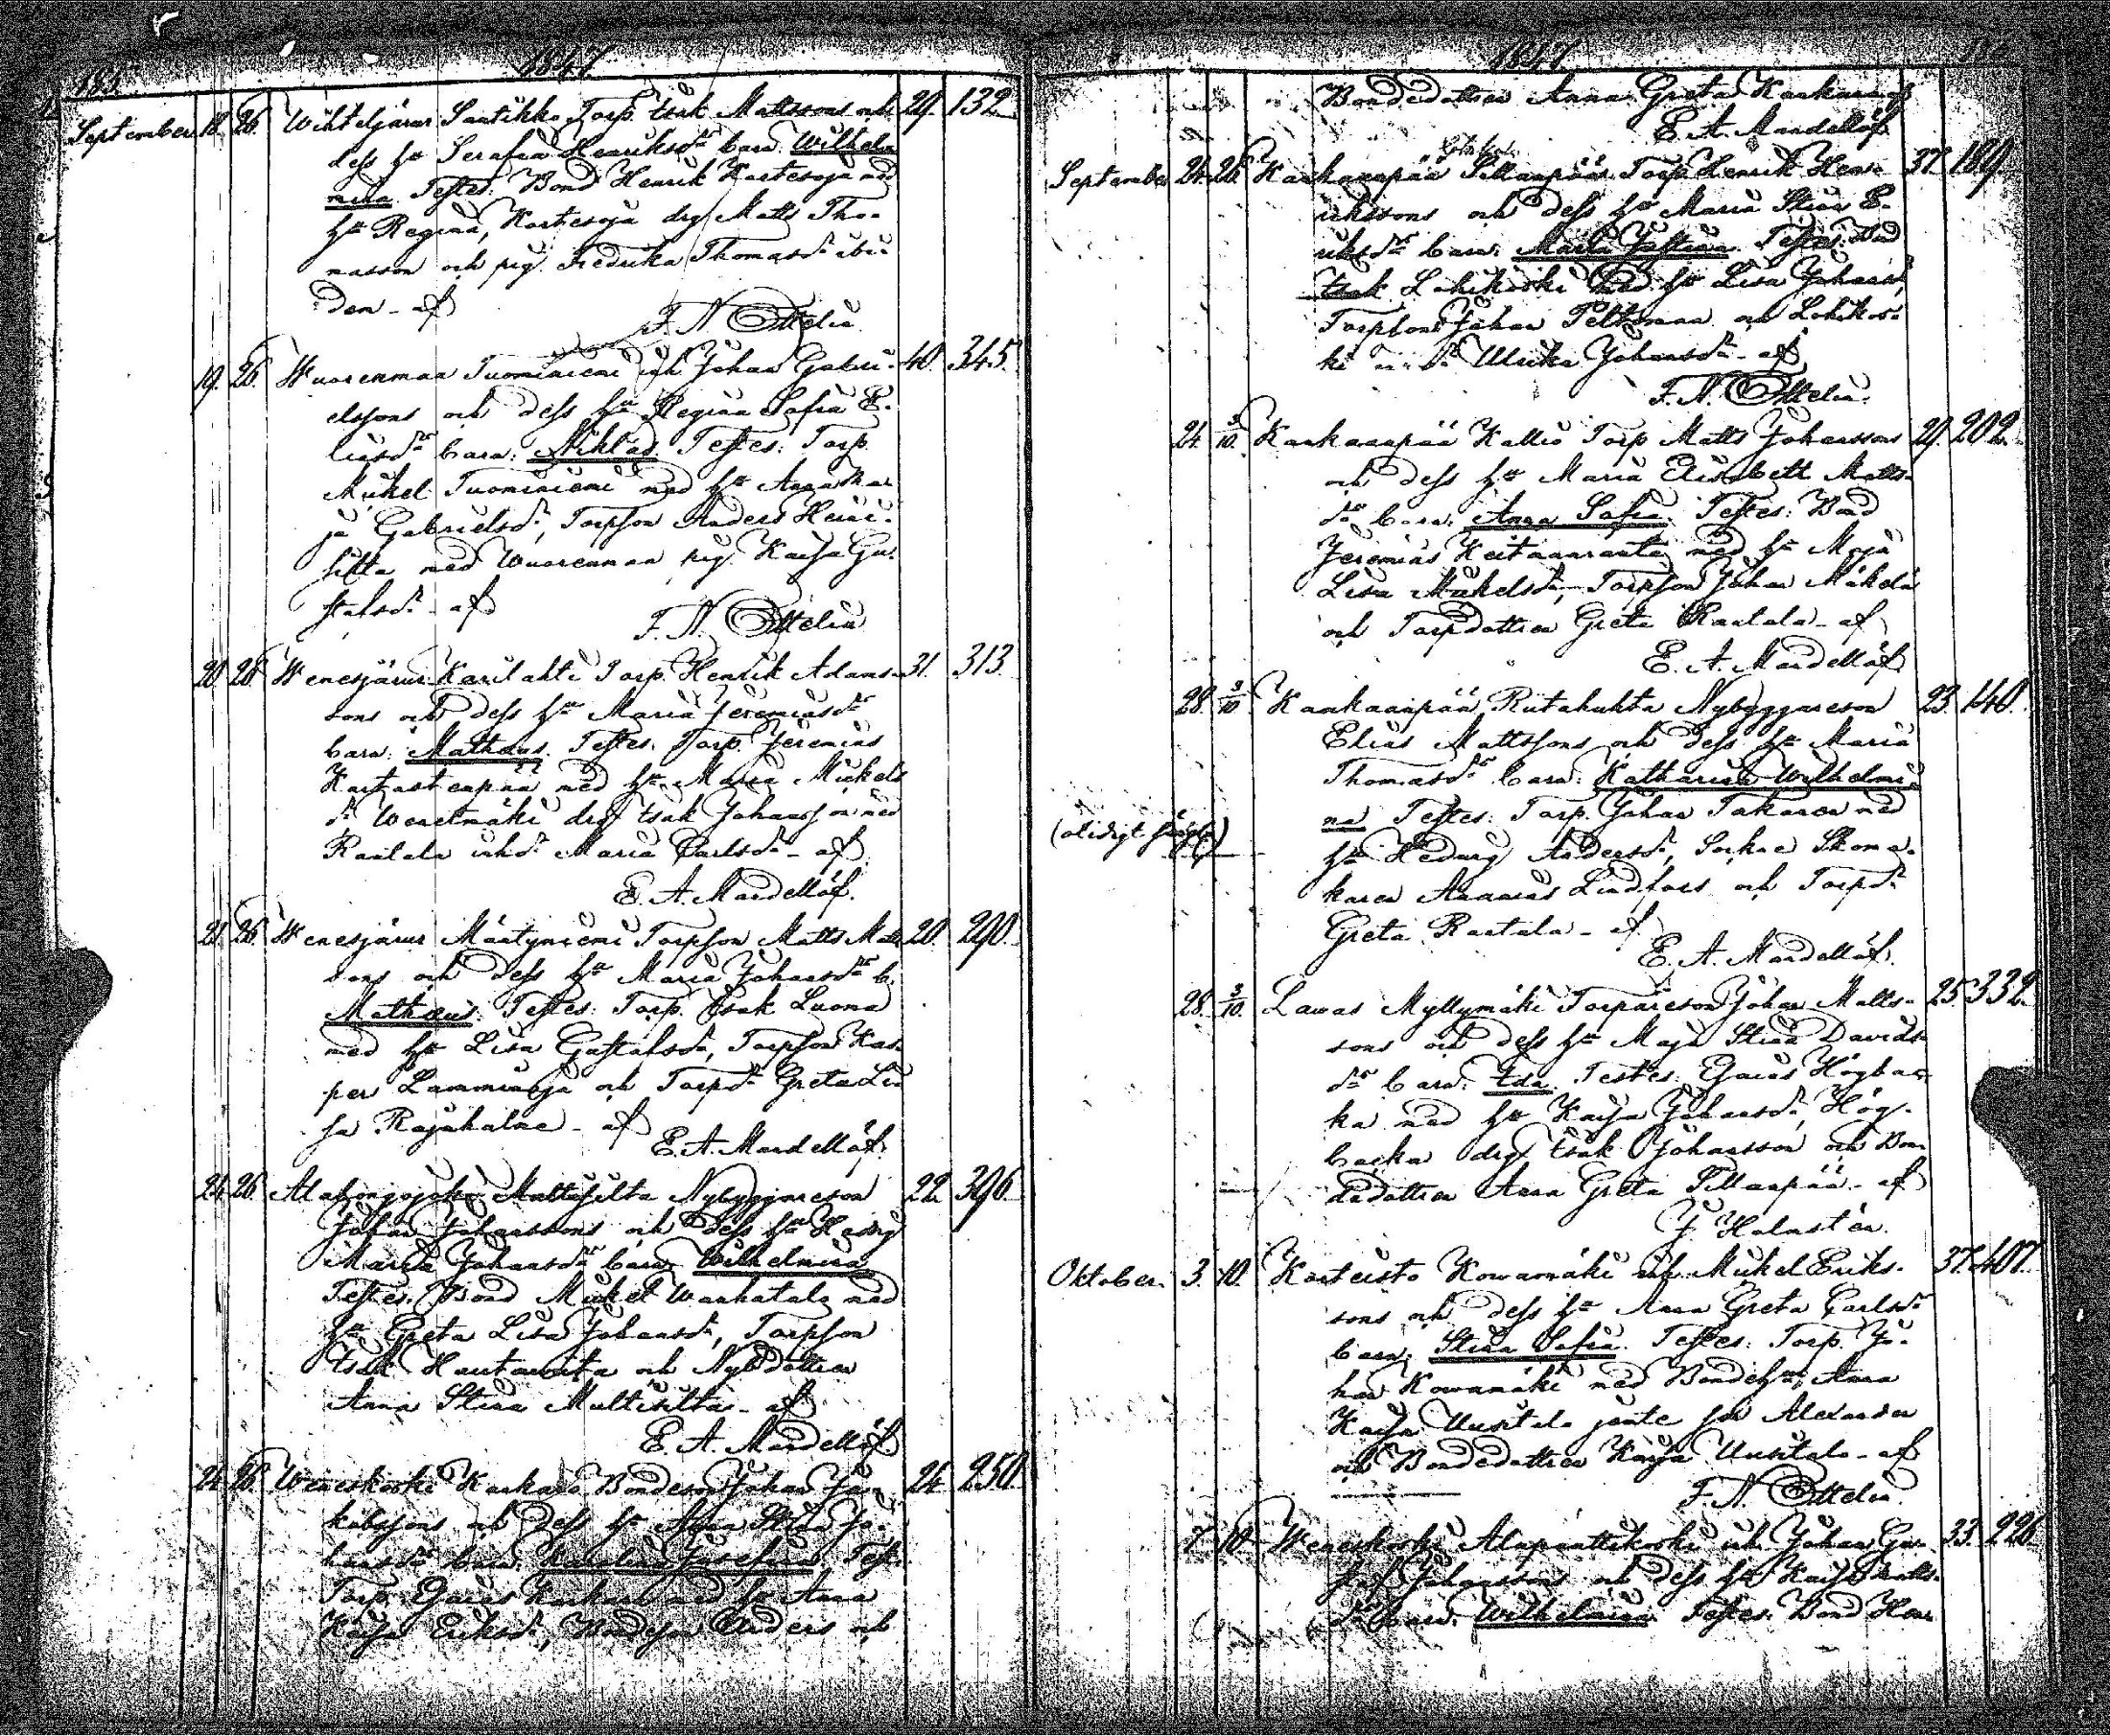 1847.
September 18. 26. Wihteljärwi Santikko Torp. Isak Mattssons och 29. 132
dess hu Serafia Henriksdr barn Wilhel-
mina Testes: Bond Henrik Kortesoja med
hu Regina, Kortesoja drg Matts Tho-
masson och pig. Fredrika Thomasdr ibi-
dem - af
F. N. Ottelin
19. 26. Wuorenmaa Tuominiemi inh Johan Gabri- 40. 345.
elssons och dess hu Regina Sofia E-
liasdr barn: Niklas. Testes: Torp.
Mickel Tuominiemi med hu Anna Mar-
ja Gabrielsdr, Torpson Anders Heini-
silta med Wuorenmaa pig. Kajsa Gu-
stafsdr - af
F. N. Ottelin
20. 26. Wenesjärwi Karilahti Torp. Henrik Adams- 31. 313.
sons och dess hu Maria Jeremiasdr
barn: Matheus. Testes: Torp. Jeremias
med hu Maria Mickels
dr drg Isak Johansson med
Rantala inhd. Maria Carlsdr - af
E. A. Mandellöf.
21. 26. Wenesjärwi Mäntyniemi Torpson Matts Matts- 20. 290.
sons och dess hu Maria Johansdr b.
Matheus. Testes: Torp. Isak Luoma
med hu Lisa Gustafsdr, Torpson Kas-
per Lamminoja och Torpdr Greta Li-
sa Rajahalme - af
E. A. Mandellöf
24. 26. Alahongojoki Multisilta Nybyggareson 22. 396.
Johan Johanssons och dess hu Hedvig
Maria Johansdr barn Wilhelmina
Testes: Bond Mickel Wanhatalo med
hu Greta Lisa Johansdr, Torpson
Isak Hautaniita och Nyb.dottren
Anna Stina Multisilta - af
E. A. Mandellöf
24. 26. Weneskoski Karkaus Bondeson Johan Ja- 24. 250.
kobssons och dess hu Anna Stina Jo-
hansdr barn Karolina Josefina. Test:
Torp. Gaius med hu Anna
Kajsa Eriksdr, Bondeson Anders och
1847
Bondedottren Anna Greta
E. A. Mandellöf
September 24. 26. Kankaanpää Pillanpään Torp. Henrik Hen- 37. 189.
rikssons och dess hu Maria Stina E-
riksdr barn: Maria Justina. Testes: Bond
Isak Lohikoski med hu Lisa Johansdr,
Torpson Johan Peltomaa och Lohikos-
ki Ulrika Johansdr - af
F. N. Ottelin.
24. 3/10. Kankaanpää Kallio Torp Matts Johanssons 29. 202.
och dess hu Maria Elisabeth Matts-
dr barn: Anna Sofia. Testes: Bond
Jeremias Keitaanranta med hu Maja
Lisa Mickelsdr, Torpson Johan Mäkelä
och Torpdottren Greta Rantala - af
E. A. Mandellöf
28. 3/10 Kankaanpää Riitahuhta Nybyggareson 23. 140.
Elias Mattssons och dess hu Maria
Thomasdr barn: Katharina Wilhelmi-
na Testes: Torp. Johan Takanen med
hu Hedvig Andersdr, Sockne Skoma-
karen Ananias Lindfors och Torpdr
Greta Rantala - af
E. A. Mandellöf.
28. 3/10. Lawas Myllymäki Torpareson Johan Matts- 25. 332.
sons och dess hu Maja Stina Davids-
dr barn: Ida. Testes: Gaius Högbac-
ka med hu Kajsa Johansdr, Hög-
backa drg Isak Johansson och Bon-
dedottren Anna Greta Pillanpää - af
J. Holmstén.
Oktober. 3. 10. Karteisto Kowamäki inh. Mickel Eriks- 37. 407.
sons och dess hu Anna Greta Carlsdr
barn: Stina Sofia. Testes: Torp. Jo-
han Kowamäki med Bondehu Anna
Kajsa Uusitalo jemte son Alexander
och Bondedottren Kajsa Uusitalo - af
F. N. Ottelin.
7. 10. Weneskoski Alapanttikoski inh. Johan Gu- 33. 226.
staf Johanssons och dess hu Kajsa Matts-
dr barn: Wilhelmina. Testes: Bond Hen-